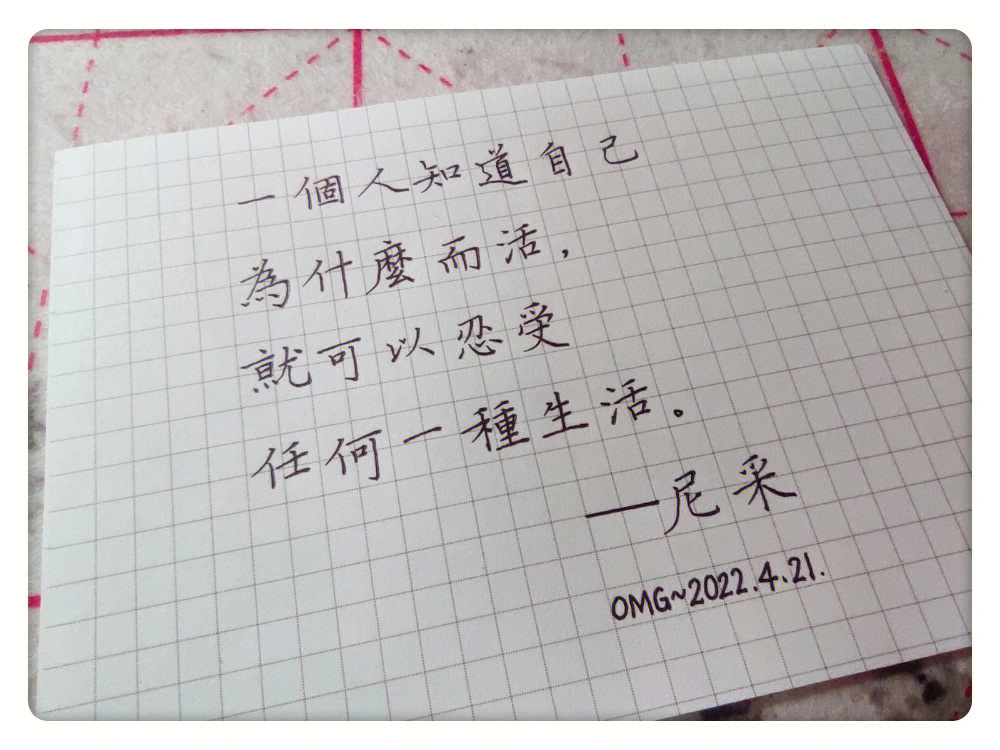 一個人知道自己
為什麼而活，
就可以忍受
任何一種生活。
—尼采
OMG~2022.4.21.